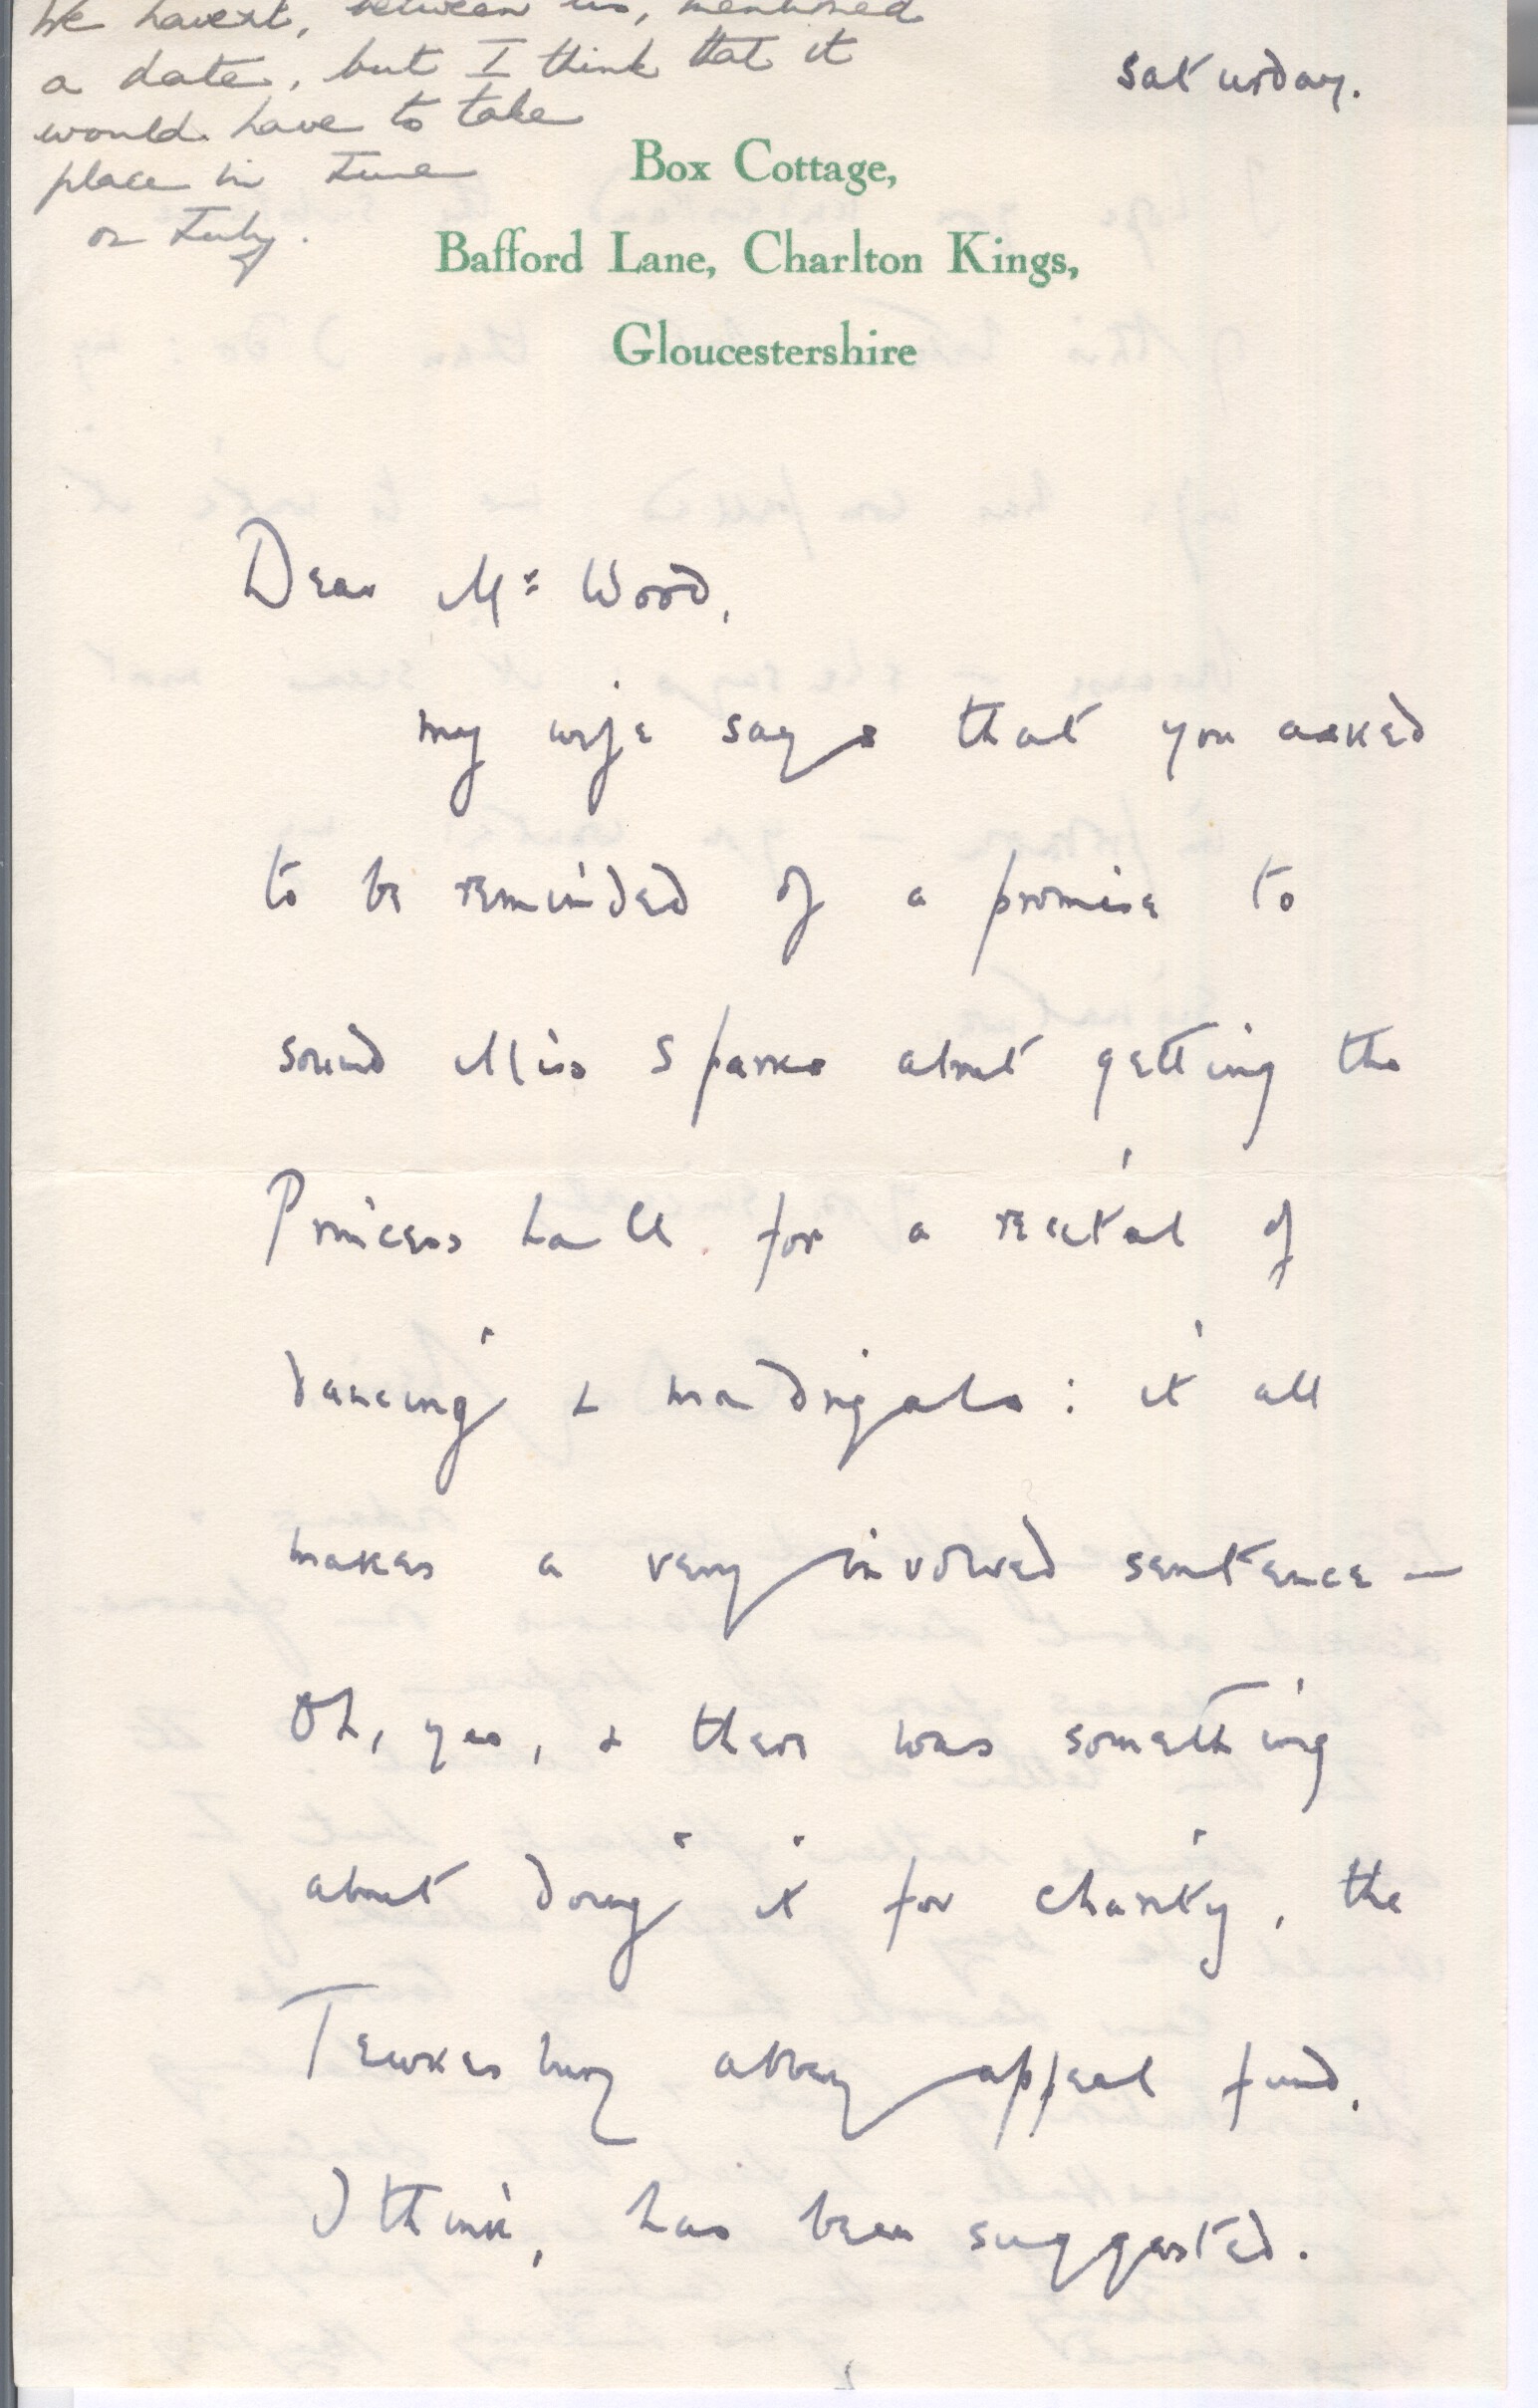 We havent, between us, mentioned
a date, but I think that it
would have to take
place in June
or July.
Saturday.
Box Cottage,
Bafford Lane, Charlton Kings,
Gloucestershire
Dear Mr Wood,
my wife says that you asked
to be reminded of a promise to
sound Miss Sparks about getting the
Princess Hall for a recital of
dancing & madrigals: it all
makes a very involved sentence —
Oh, yes, & there was something
about doing it for charity, the
Tewkesbury abbey appeal fund,
I think, has been suggested.